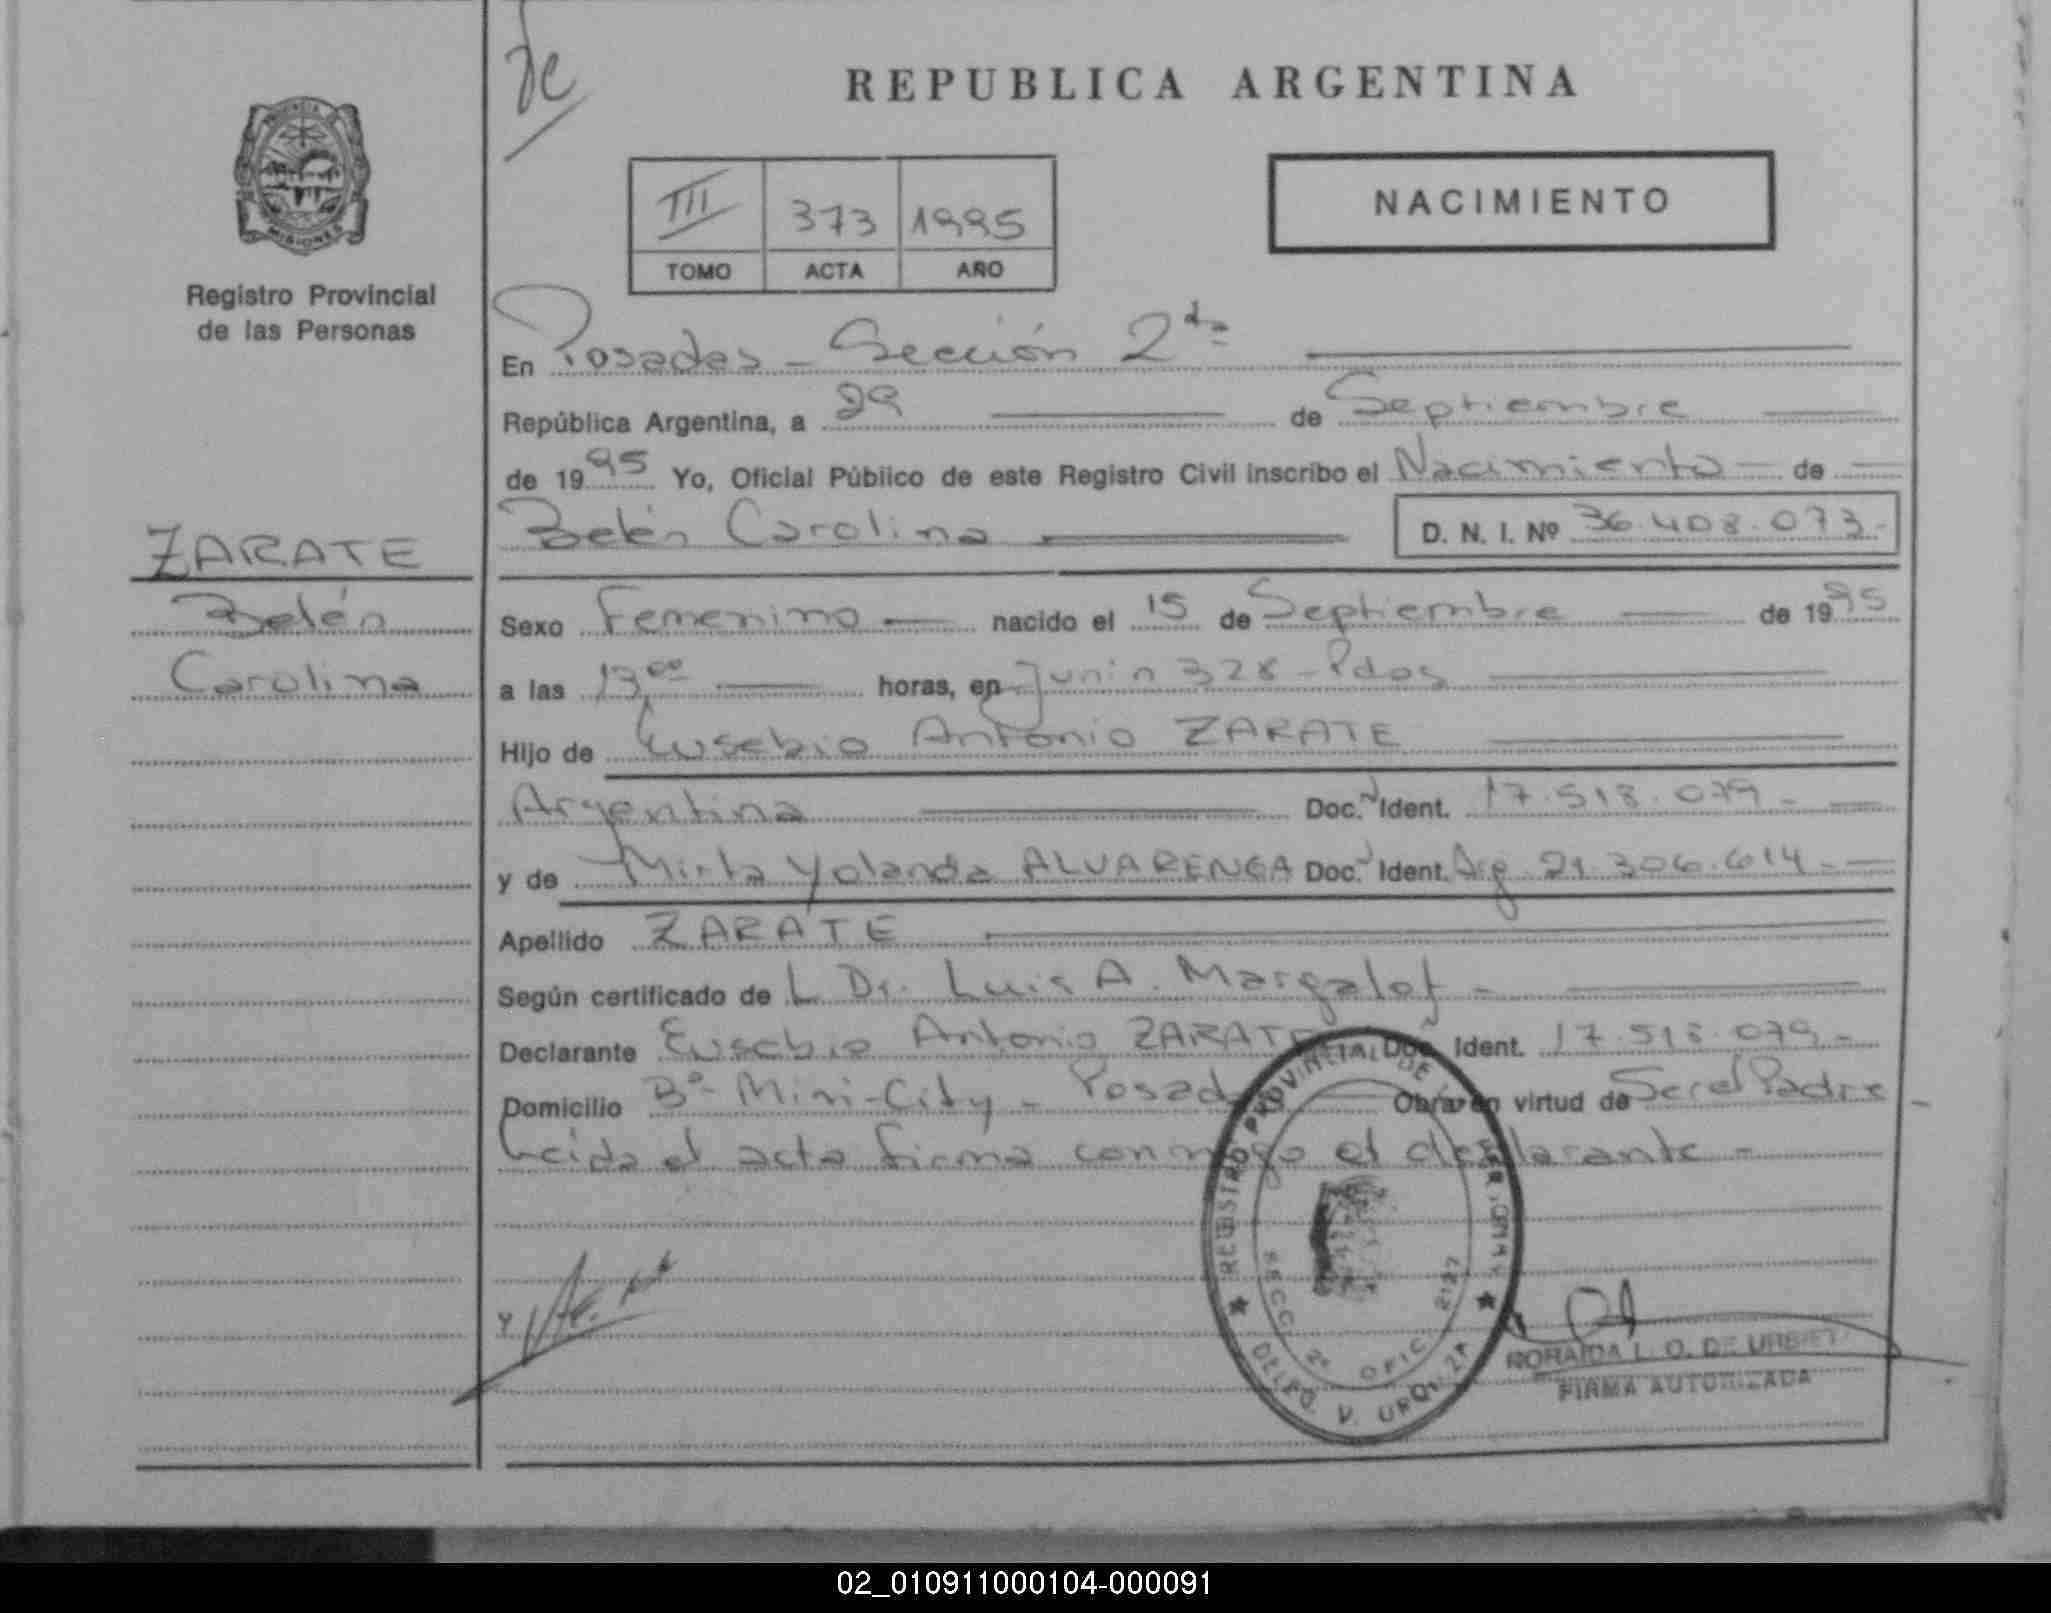 de
REPUBLICA ARGENTINA
PROVINCIA
MISIONES
Registro Provincial
de las Personas
III 373 1995
TOMO ACTA AÑO
NACIMIENTO
En Posadas - Sección 2da
República Argentina, a 29 de Septiembre
de 1995 Yo, Oficial Público de este Registro Civil inscribo el Nacimiento de
Belén Carolina D. N. I. Nº 36.408.073.-
ZARATE
Belén
Carolina
Sexo Femenino nacido el 15 de Septiembre de 1995
a las 13,00 horas, en Junín 328 - Pdas
Hijo de Eusebio Antonio ZARATE
Argentina Doc. Ident. 17.513.079.-
y de Mirta Yolanda ALVARENGA Doc. Ident. Arg 21.306.614.-
Apellido ZARATE
Según certificado de L Dr. Luis A. Margalot -
Declarante Eusebio Antonio ZARATE Doc. Ident. 17.513.079.-
Domicilio Bº Mini-City - Posadas Obra en virtud de Ser el Padre
Leida el acta firma conmigo el declarante -
REGISTRO PROVINCIAL DE
SECC. 2ª OFIC. 2127
DELEG. V. URQUIZA
L. O. DE
FIRMA AUTORIZADA
02_010911000104-000091